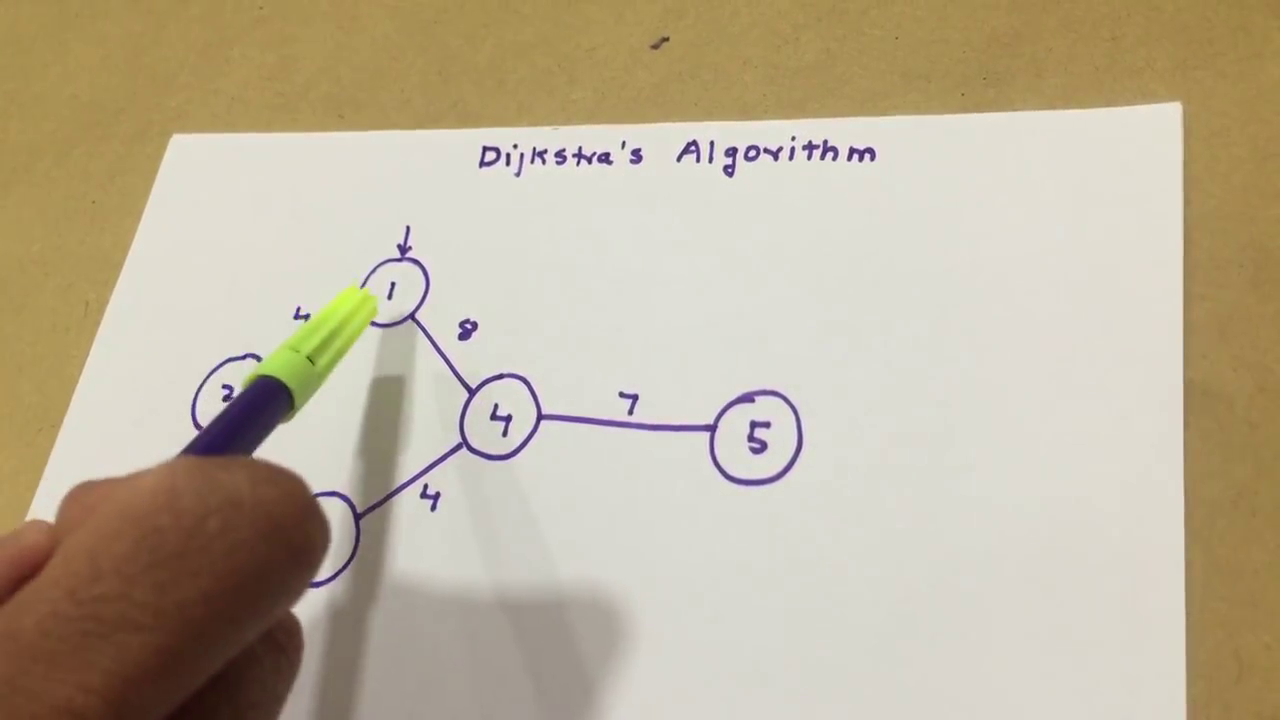 Dijkstra's Algorithm
1
4
8
2
4
7
5
4